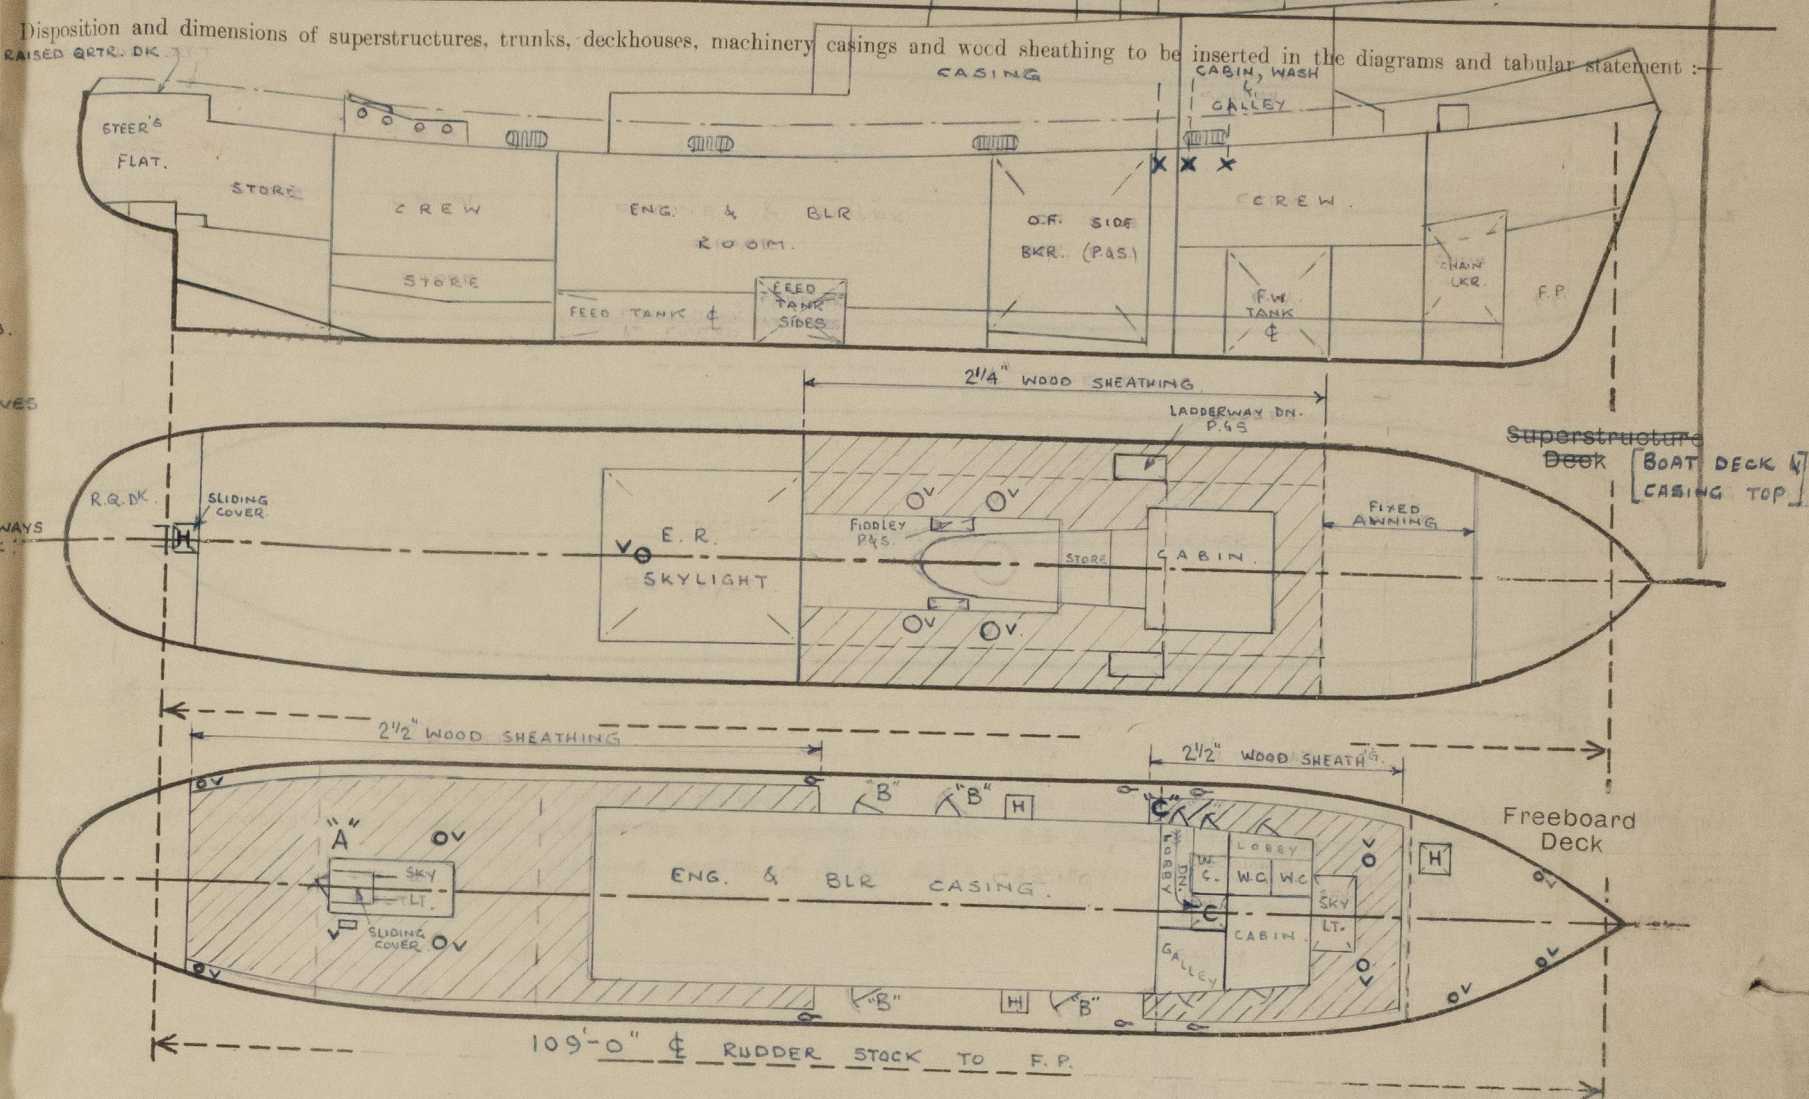 Disposition and dimensions of superstructures, trunks, deckhouses, machinery casings and wood sheathing to be inserted in the diagrams and tabular statement :—
RAISED QRTR. DK.
CASING
CABIN, WASH
&
GALLEY
STEER'S
FLAT.
STORE
CREW
STORE
ENG. & BLR
ROOM.
FEED TANK ℄
FEED
TANK
SIDES
O.F. SIDE
BKR. (P.&S.)
CREW.
F.W.
TANK
℄
CHAIN
LKR.
F.P.
2 1/4" WOOD SHEATHING.
LADDERWAY DN.
P.&S
VES
WAYS
Superstructure
Deck
[BOAT DECK &
CASING TOP]
R.Q.DK.
SLIDING
COVER.
H
V
E.R.
SKYLIGHT
FIDDLEY
P.&S.
V
V
V
V
STORE
CABIN.
FIXED
AWNING
2 1/2" WOOD SHEATHING
2 1/2" WOOD SHEATH'G.
V
"A"
V
SKY
LT.
SLIDING
COVER.
V
V
V
"B"
"B"
H
"C"
ENG. & BLR CASING.
LOBBY
DN.
W.
C.
LOBBY
W.C.
W.C
C
CABIN.
GALLEY
SKY
LT.
V
V
H
V
V
V
Freeboard
Deck
"B"
H
"B"
109'-0" ℄ RUDDER STOCK TO F.P.